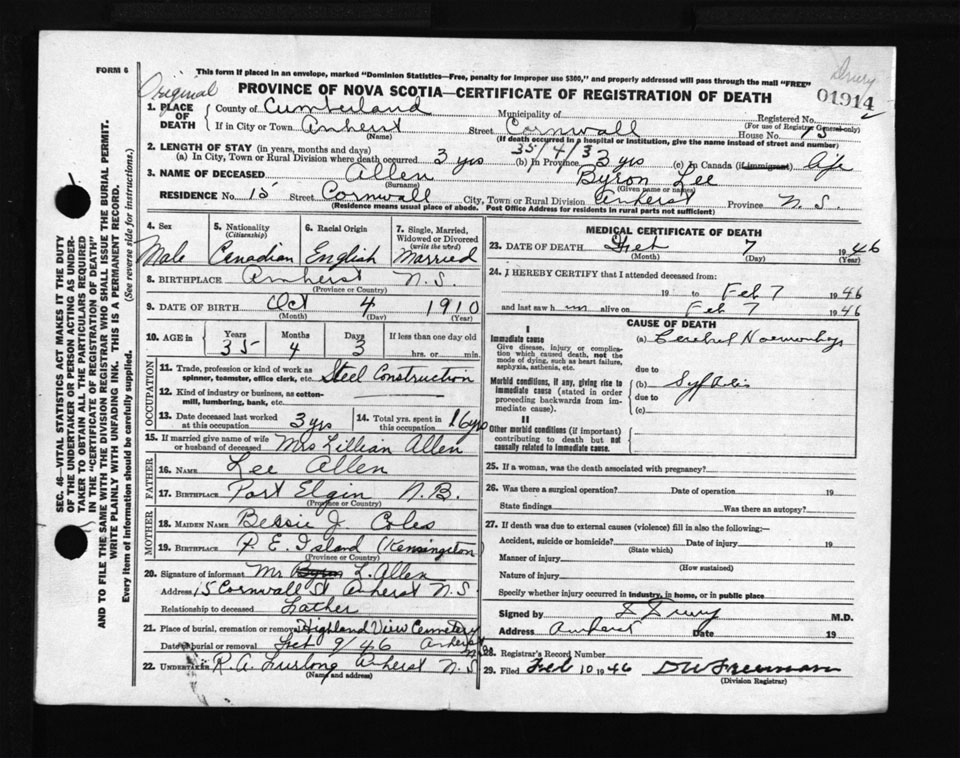 FORM 6
This form if placed in an envelope, marked "Dominion Statistics—Free, penalty for improper use $300," and properly addressed will pass through the mail "FREE"
Drury
Original
PROVINCE OF NOVA SCOTIA—CERTIFICATE OF REGISTRATION OF DEATH
01914
1. PLACE OF DEATH
County of Cumberland
Municipality of
Registered No.
(For use of Registrar General only)
If in City or Town Amherst Street Cornwall House No. 15
(Name)
(If death occurred in a hospital or institution, give the name instead of street and number)
2. LENGTH OF STAY (in years, months and days) 35/4/3
(a) In City, Town or Rural Division where death occurred 3 yrs (b) In Province 3 yrs (c) In Canada (if immigrant) life
3. NAME OF DECEASED Allen Byron Lee
(Surname) (Given name or names)
RESIDENCE No. 15 Street Cornwall City, Town or Rural Division Amherst Province N.S.
(Residence means usual place of abode. Post Office Address for residents in rural parts not sufficient)
4. Sex
Male
5. Nationality (Citizenship)
Canadian
6. Racial Origin
English
7. Single, Married, Widowed or Divorced (write the word)
Married
8. BIRTHPLACE Amherst N.S.
(Province or Country)
9. DATE OF BIRTH Oct 4 1910
(Month) (Day) (Year)
10. AGE Years 35 Months 4 Days 3 If less than one day old
hrs. or min.
OCCUPATION
11. Trade, profession or kind of work as spinner, teamster, office clerk, etc. Steel Construction
12. Kind of industry or business, as cotton-mill, lumbering, bank, etc.
13. Date deceased last worked at this occupation 3 yrs
14. Total yrs. spent in this occupation 16 yrs
15. If married give name of wife or husband of deceased Mrs Lillian Allen
FATHER
16. NAME Lee Allen
17. BIRTHPLACE Port Elgin N.B.
(Province or Country)
MOTHER
18. MAIDEN NAME Bessie J. Coles
19. BIRTHPLACE P.E. Island (Kensington)
(Province or Country)
20. Signature of informant Mr Byron L. Allen
Address 15 Cornwall St Amherst N.S.
Relationship to deceased Father
21. Place of burial, cremation or removal Highland View Cemetery
Date of burial or removal Feb 9/46 Amherst N.S.
22. UNDERTAKER R.A. Furlong Amherst N.S.
(Name and address)
MEDICAL CERTIFICATE OF DEATH
23. DATE OF DEATH Feb 7 1946
(Month) (Day) (Year)
24. I HEREBY CERTIFY that I attended deceased from:
19 to Feb 7 1946
and last saw h im alive on Feb 7 1946
CAUSE OF DEATH
I
Immediate cause
Give disease, injury or complication which caused death, not the mode of dying, such as heart failure, asphyxia, asthenia, etc.
(a) Cerebral
due to
Morbid conditions, if any, giving rise to immediate cause (stated in order proceeding backwards from immediate cause).
(b) Syphilis
due to
(c)
II
Other morbid conditions (if important) contributing to death but not causally related to immediate cause.
25. If a woman, was the death associated with pregnancy?
26. Was there a surgical operation? Date of operation 19
State findings Was there an autopsy?
27. If death was due to external causes (violence) fill in also the following:—
Accident, suicide or homicide? Date of injury 19
(State which)
Manner of injury
(How sustained)
Nature of injury
Specify whether injury occurred in industry, in home, or in public place
Signed by M.D.
Address Amherst Date 19
28. Registrar's Record Number
29. Filed Feb 10 1946 D W Freeman
(Division Registrar)
SEC. 46—VITAL STATISTICS ACT MAKES IT THE DUTY
OF THE UNDERTAKER OR PERSON ACTING AS UNDER-
TAKER TO OBTAIN ALL THE PARTICULARS REQUIRED
IN THE "CERTIFICATE OF REGISTRATION OF DEATH"
AND TO FILE THE SAME WITH THE DIVISION REGISTRAR WHO SHALL ISSUE THE BURIAL PERMIT.
WRITE PLAINLY WITH UNFADING INK. THIS IS A PERMANENT RECORD.
Every item of information should be carefully supplied. (See reverse side for instructions.)